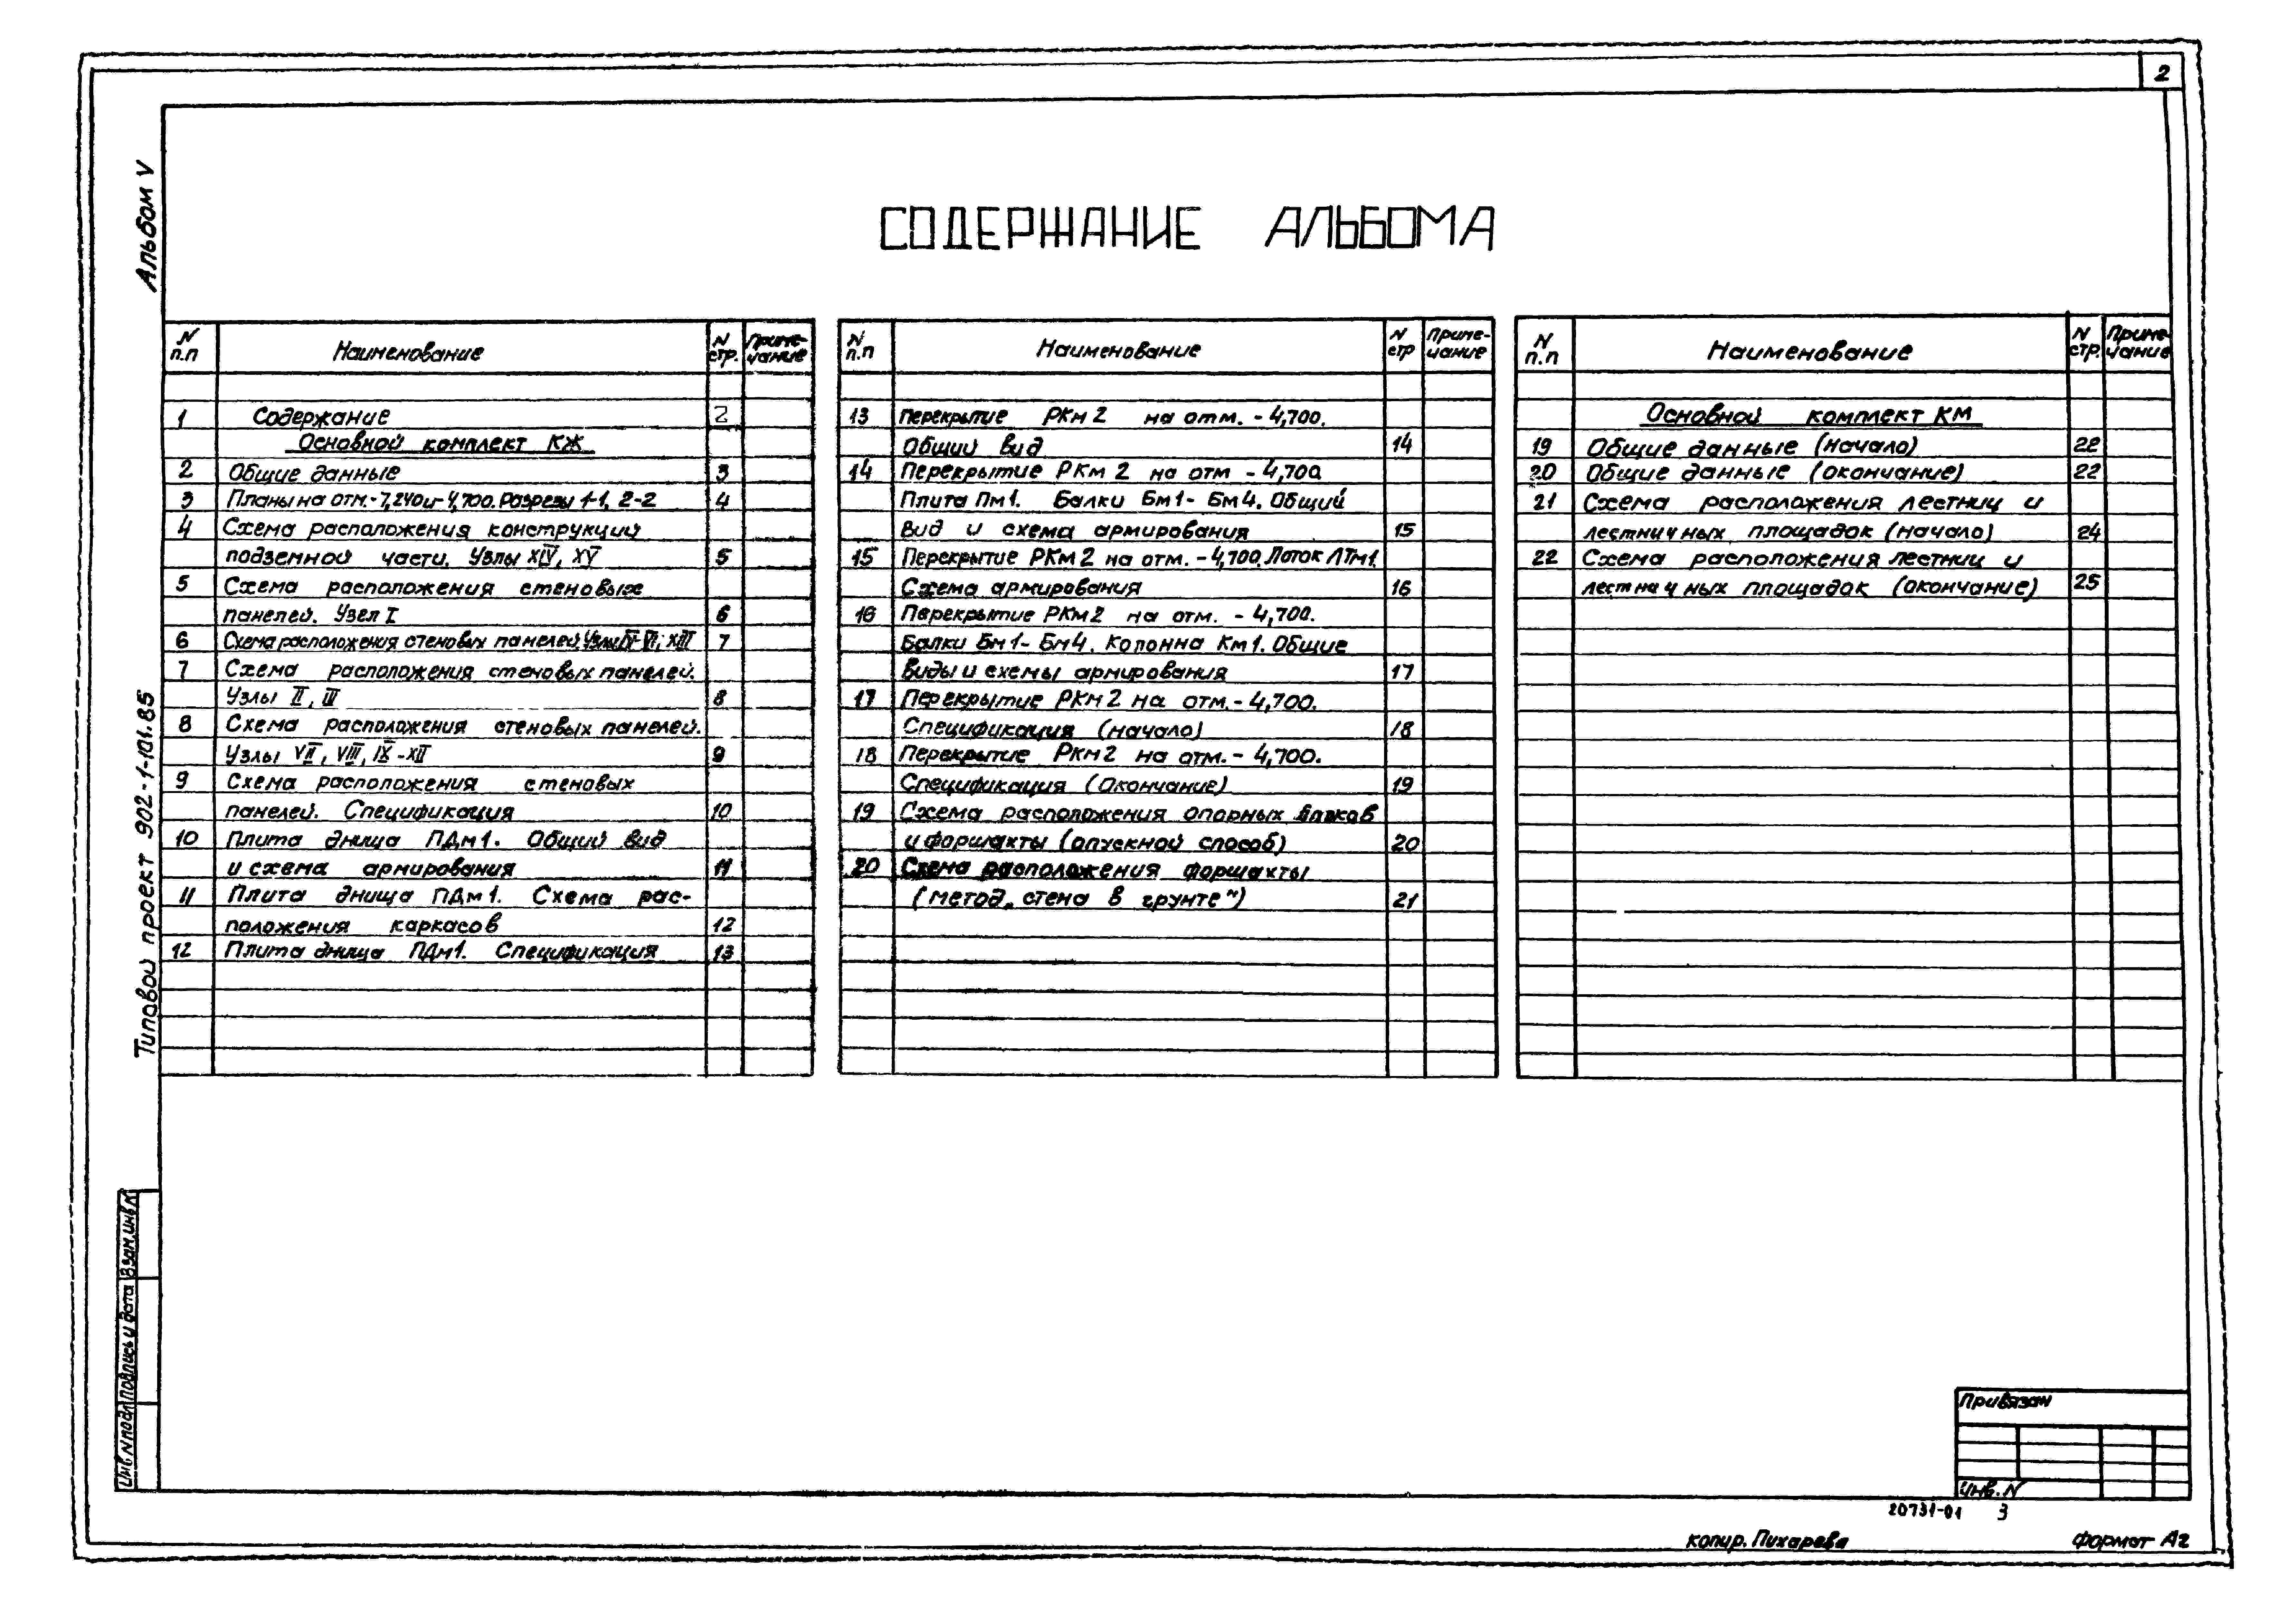 2
Альбом V
СОДЕРЖАНИЕ АЛЬБОМА
N п.п Наименование N стр. Приме-чание
1 Содержание 2
Основной комплект КЖ
2 Общие данные 3
3 Планы на отм.-7,240 и -4,700. Разрезы 1-1, 2-2 4
4 Схема расположения конструкций
подземной части. Узлы XIV, XV 5
5 Схема расположения стеновых
панелей. Узел I 6
6 Схема расположения стеновых панелей. Узлы IV-VI; XIII 7
7 Схема расположения стеновых панелей.
Узлы II, III 8
8 Схема расположения стеновых панелей.
Узлы VII, VIII, IX-XII 9
9 Схема расположения стеновых
панелей. Спецификация 10
10 Плита днища ПДм1. Общий вид
и схема армирования 11
11 Плита днища ПДм1. Схема рас-
положения каркасов 12
12 Плита днища ПДм1. Спецификация 13
N п.п Наименование N стр Приме-чание
13 Перекрытие РКм2 на отм. -4,700.
Общий вид 14
14 Перекрытие РКм2 на отм -4,700
Плита Пм1. Балки Бм1-Бм4. Общий
вид и схема армирования 15
15 Перекрытие РКм2 на отм. -4,700. Лоток ЛТм1.
Схема армирования 16
16 Перекрытие РКм2 на отм. -4,700.
Балки Бм1-Бм4. Колонна Км1. Общие
виды и схемы армирования 17
17 Перекрытие РКм2 на отм.-4,700.
Спецификация (начало) 18
18 Перекрытие РКм2 на отм.-4,700.
Спецификация (окончание) 19
19 Схема расположения опорных блоков
и форшахты (опускной способ) 20
20 Схема расположения форшахты
(метод „стена в грунте") 21
N п.п Наименование N стр. Приме-чание
Основной комплект КМ
19 Общие данные (начало) 22
20 Общие данные (окончание) 22
21 Схема расположения лестниц и
лестничных площадок (начало) 24
22 Схема расположения лестниц и
лестничных площадок (окончание) 25
Типовой проект 902-1-101.85
Инв.N подл Подпись и дата Взам.инв.N
Привязан
Инв.N
20731-01 3
копир. Пихарева Формат А2